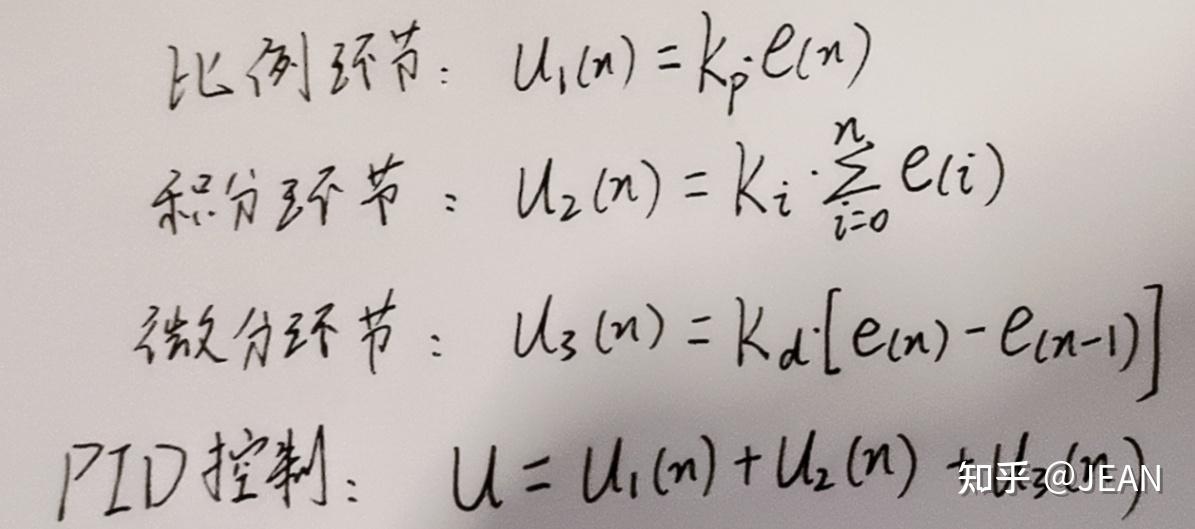 比例环节: u₁(n) = kₚ·e(n)
积分环节: u₂(n) = kᵢ·∑ⁿᵢ₌₀ e(i)
微分环节: u₃(n) = k_d·[e(n) - e(n-1)]
PID控制: u = u₁(n) + u₂(n) + u₃(n)
知乎 @JEAN